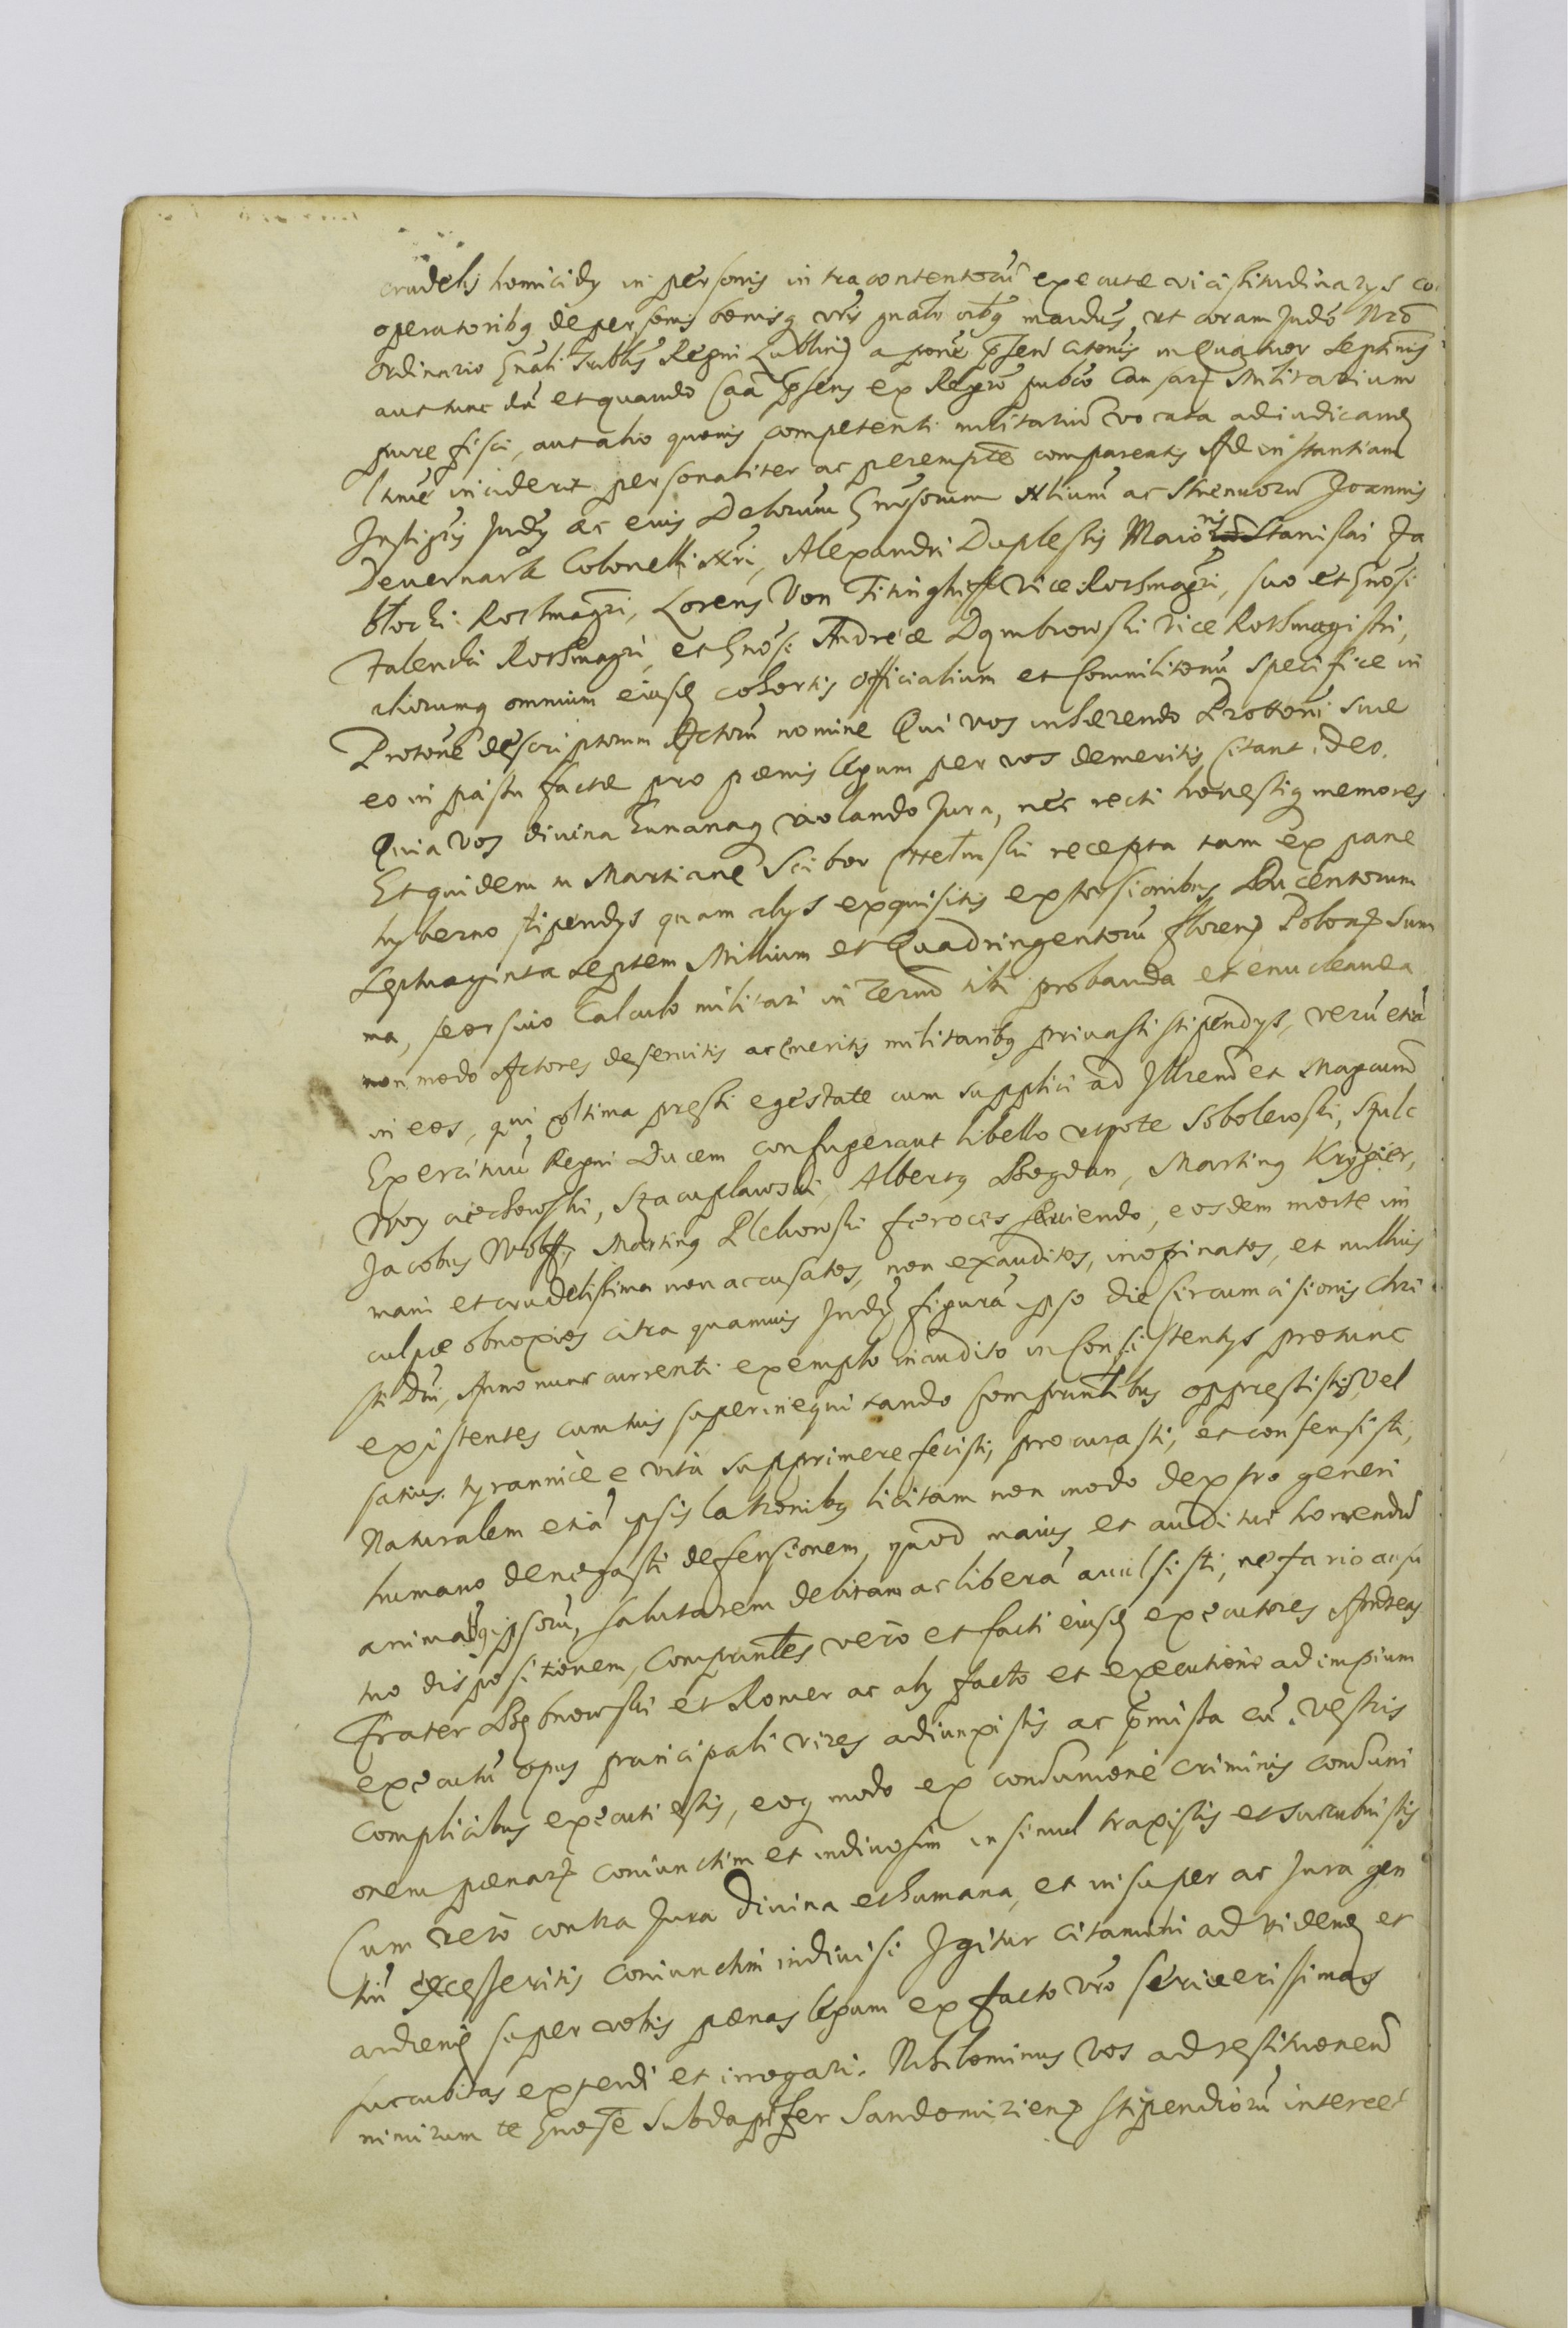 crudelis homicidy in personis intracontentorũ executæ vicissitudinarys co
operatoribq de personis bonisq vris gnalr oibq mandũs, ut coram Judõ Nrõ
Ordinario Gnãli Trublis Regni Lublinẽ a põne pñsen citonis in Quatuor Septimis
aut tunc dũ et quando Caã pñsens ex Regrõ pubco Causarũ Militarium
siue fisci, aut alio quovis competenti militariũ vocata adiudicamẽ
inciderit personaliter ac peremptẽ compareatis Ad instantiam
Instigris Judy ac eius Delorum Gnrsorum Nlium ac Strenuorũ Joannis
Deuernark Colonelli Nri, Alexandri Duplessis Maioris Stanislai Ja
błocki: Rothmagri, Lorens Von Fitinghoff Vice Rothmagri, suo et Gnosi
Zalenski Rothmagri, et Gnosi Andreæ Dąmbrowski Vice Rothmagistri,
aliorumq omnium eiusd cohortis officialium et Commilitonũ specifice in
Protone descriptorum Actorũ nomine Qui vos inhærendo Protoni suæ
eo in pastu factæ pro pœnis legum per vos demeritis citant. Ideo.
Quia vos divina humanaq violando Jura, nec recti honestiq memores
Et quidem tu Martiane Scibor recepta tam ex pane
hyberno stipendys quam alys exquisitis extorsionibus Ducentorum
Septuaginta Septem Millium et Quadringentorũ floren Polon Sum
ma, seorsiuo Calculo militari in Termõ tibi probanda et enucleanda
non modo Actores deseruitis ac emeritis militaribq priuasti stipendys, verũ etiã
in eos, qui ultima pressi egestate cum supplici ad Illrem et Magcum
Exercituũ Regni Ducem confugerant libello utpote Sobolewski, Szulc
Woyciechowski, Szacupławski, Albertq Bogdan, Martinq Krygier,
Jacobus Wolff, Martinq Plchowski ferocis sæuiendo, eosdem morte im
mani et crudelissima non accusatos, non exauditos, inopinatos, et nullius
culpæ obnoxios citra quamuis Judy figurã ipso die Circumcisionis Chri
sti Dni, Anno nunc currenti exemplo inaudito in Consistentys protunc
existentes cum tuis superinequitando comprintibus oppressistis, vel
satius tyrannice e vita supprimere fecisti, procurasti, et consensisti,
Naturalem etiã ipsis latronibq licitam non modo dextro generi
humano denegasti defensionem, quod maius, et auditui horrendũ
ipsorũ, salutarem debitam ac liberã auulsisti, nefario ausu
tuo dispositionem, Comprintes verò et facti eiusd executores Andreas
Frater et Romer ac aly facto et executione ad impium
executũ opus principali vires adiunxistis ac pmissa cũ vestris
complicibus executi estis, eoq modo ex consumone criminis consuni
onem pœnarũ coniunctim et indiuisim insimul traxistis et succubuistis
Cum verò contra Jura Divina et humana, et insuper ac Jura gen
tiũ excesseritis coniunctim indiuisi Igitur citamini ad videnẽ et
audienẽ super vobis pœnas legum ex facto vrõ seriuerissimas
succubitas extendi et irrogari. Nihilominus Vos ad restituonem
nimirum te Gnose Subdapifer Sandomirien stipendiorũ intercep